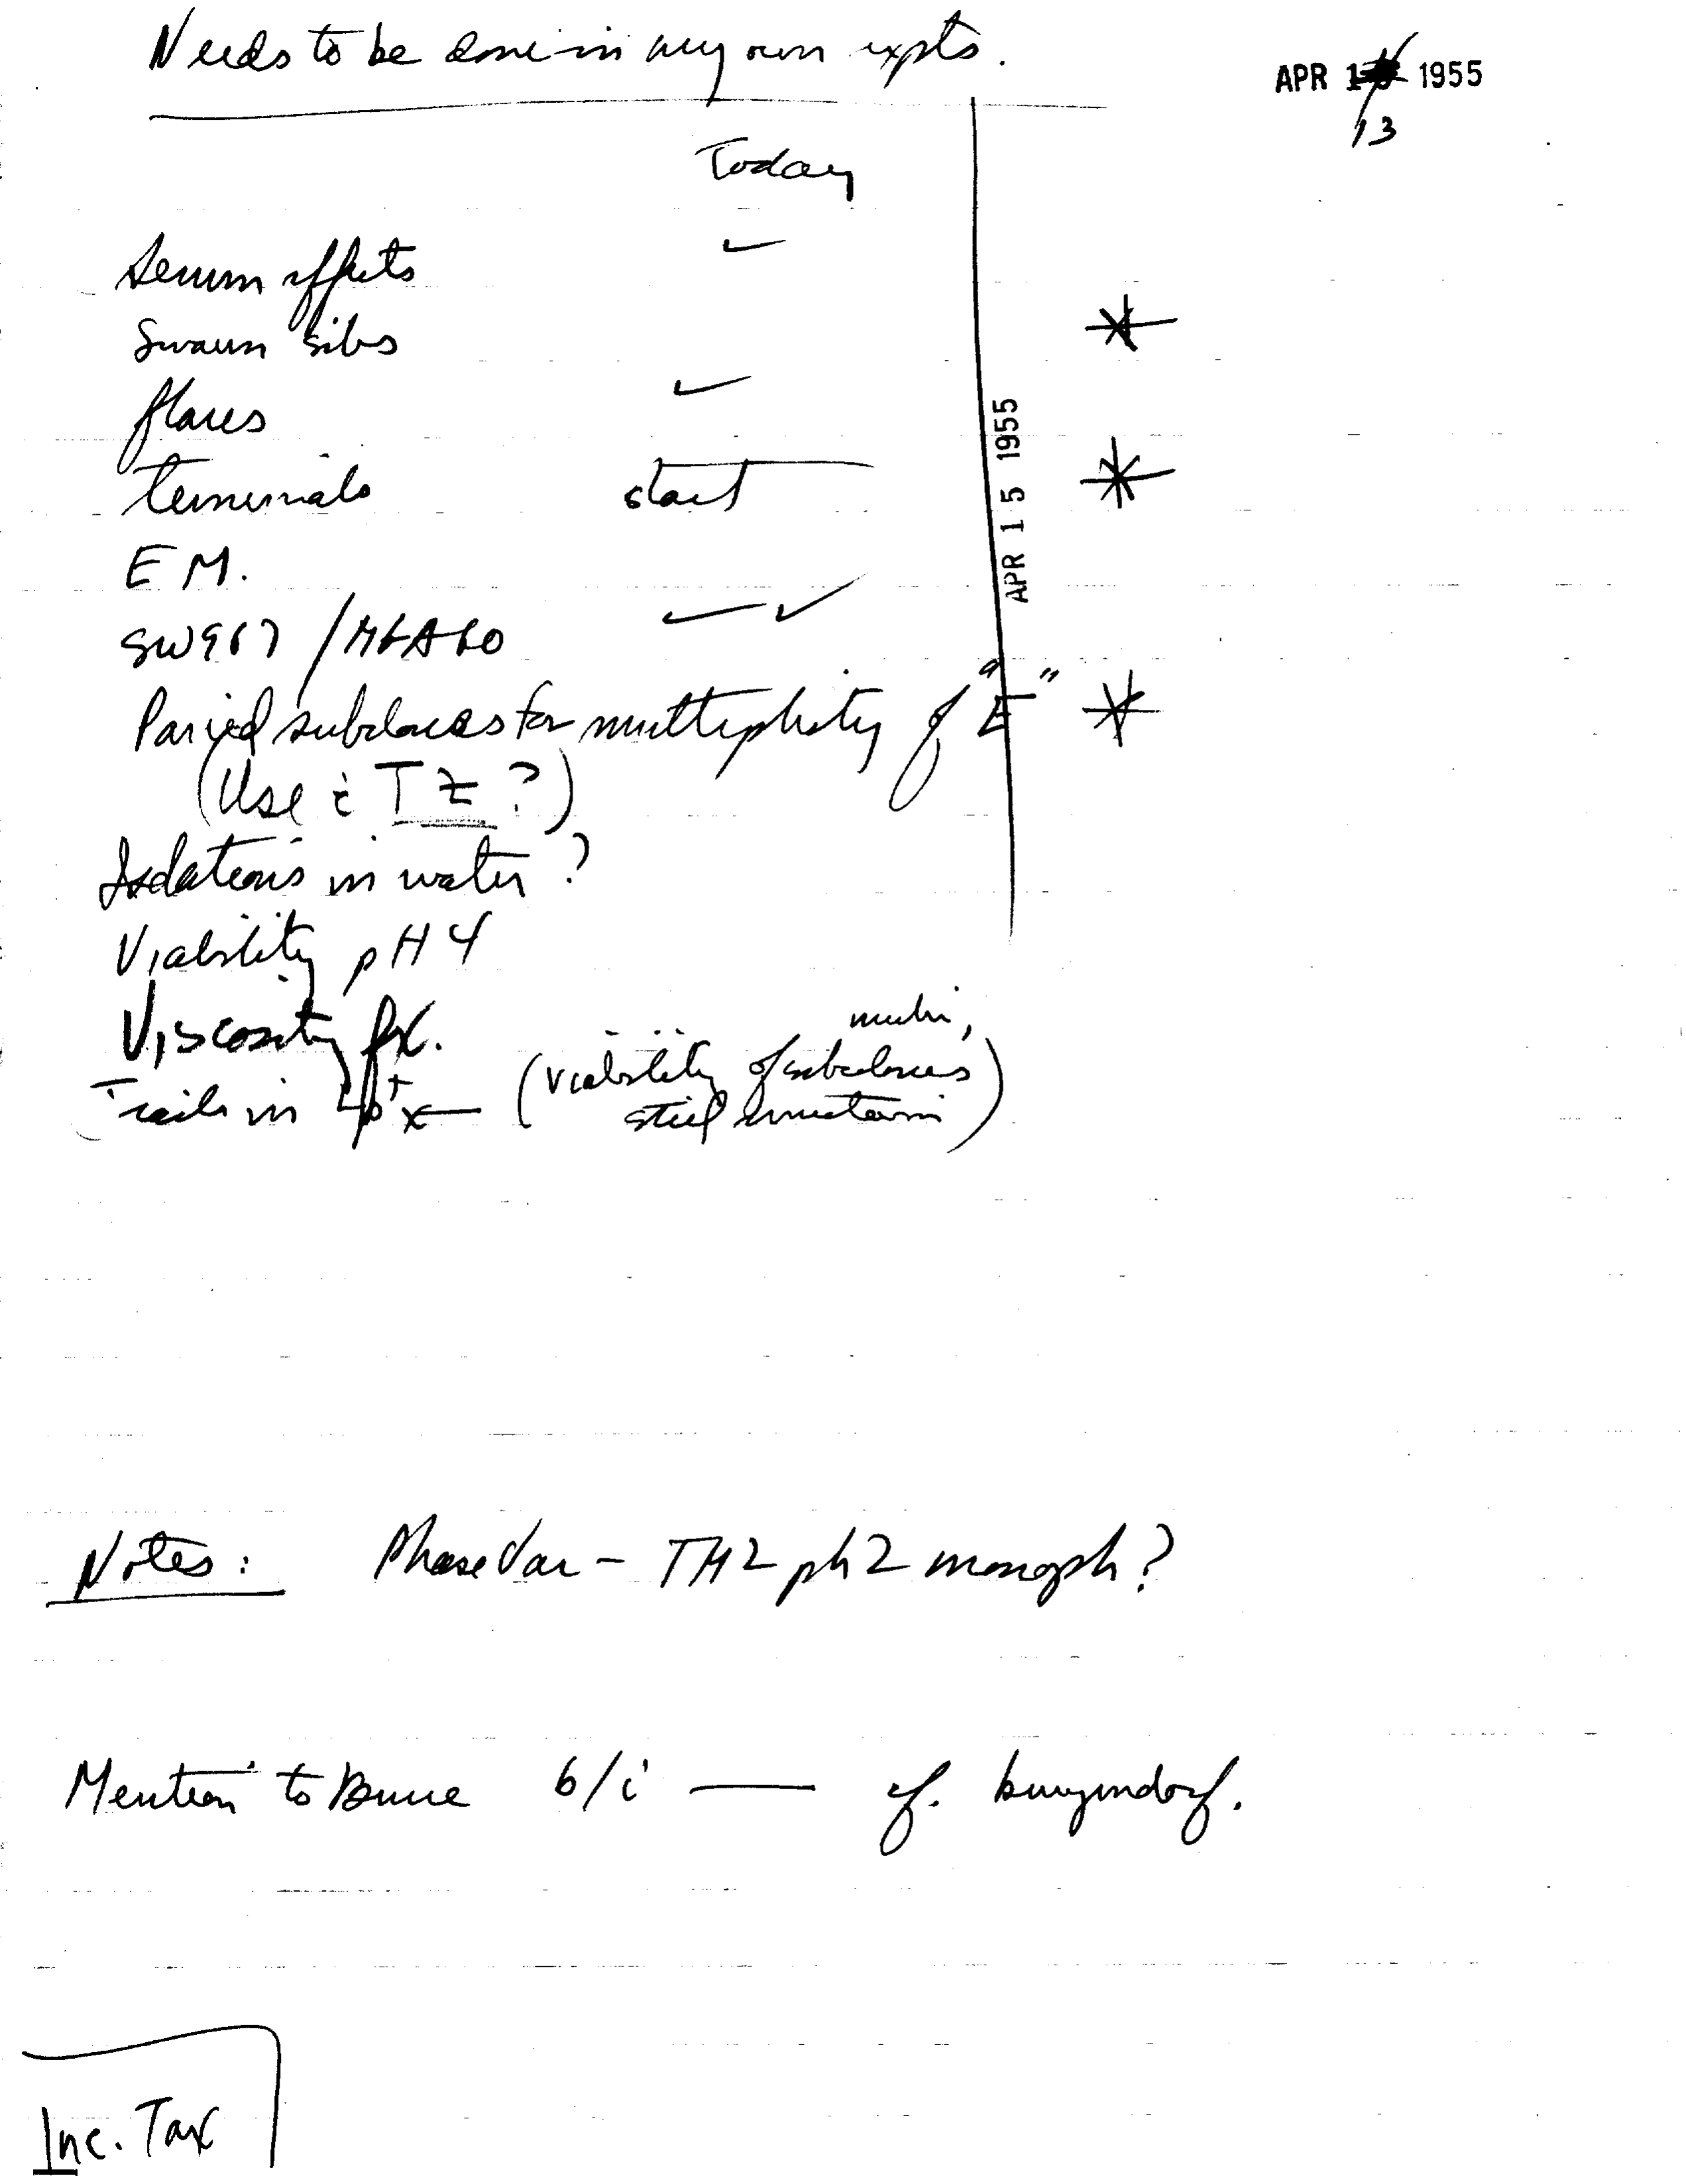 Needs to be done in my own expts.
APR 1 1955
13
Today
Serum effects ✓
Swarm sibs
flares ✓
terminals start
APR 15 1955
E M.
SW967 /
Paired subclones for multiplicity of "E"
(Use c̄ TZ ?)
Isolations in water ?
Viability pH 4
Viscosity fx.
Trails in
(viability of subclones
still uncertain)
Notes: Phase Var - TM2 ph 2 monoph ?
Mention to Bruce b/i — cf.
Inc. Tax